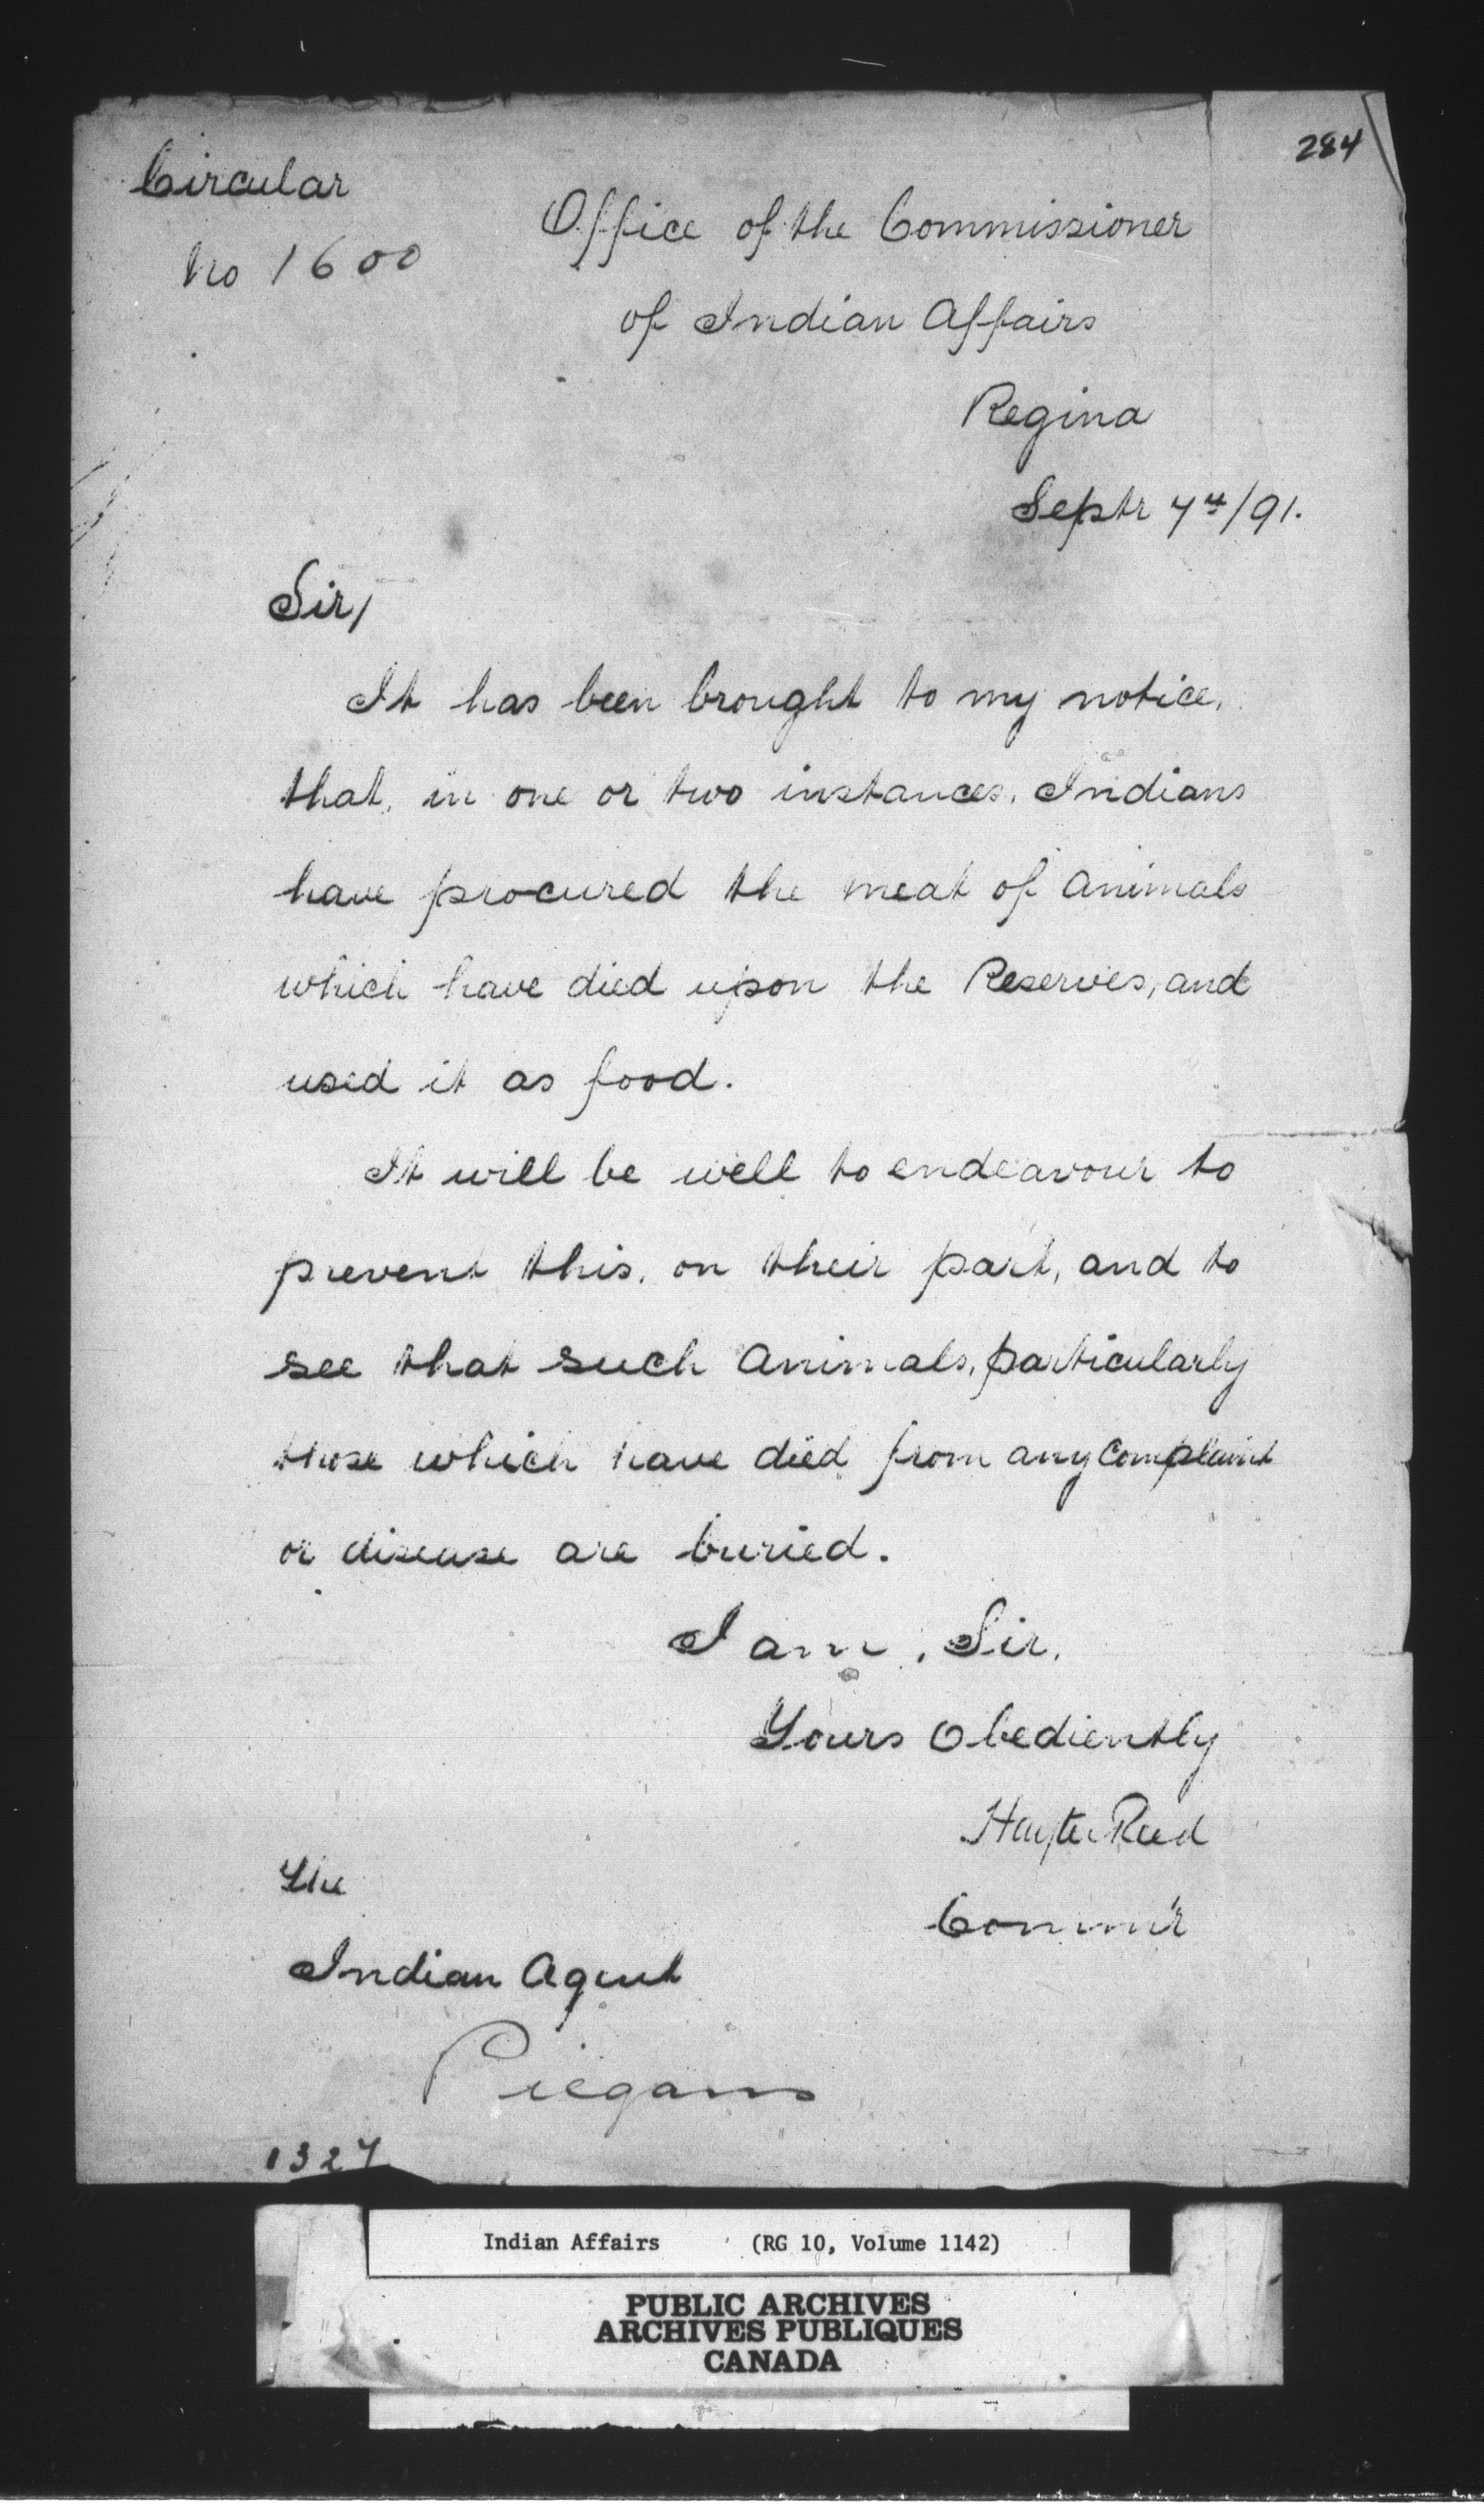 284
Circular
No 1600
Office of the Commissioner
of Indian Affairs
Regina
Septr 7th/91.
Sir,
It has been brought to my notice,
that, in one or two instances, Indians
have procured the meat of animals
which have died upon the Reserves, and
used it as food.
It will be well to endeavour to
prevent this, on their part, and to
see that such animals, particularly
those which have died from any complaint
or disease are buried.
I am, Sir,
Yours Obediently
Hayter Reed
Comm'r
The
Indian Agent
Piegans
1327
Indian Affairs (RG 10, Volume 1142)
PUBLIC ARCHIVES
ARCHIVES PUBLIQUES
CANADA